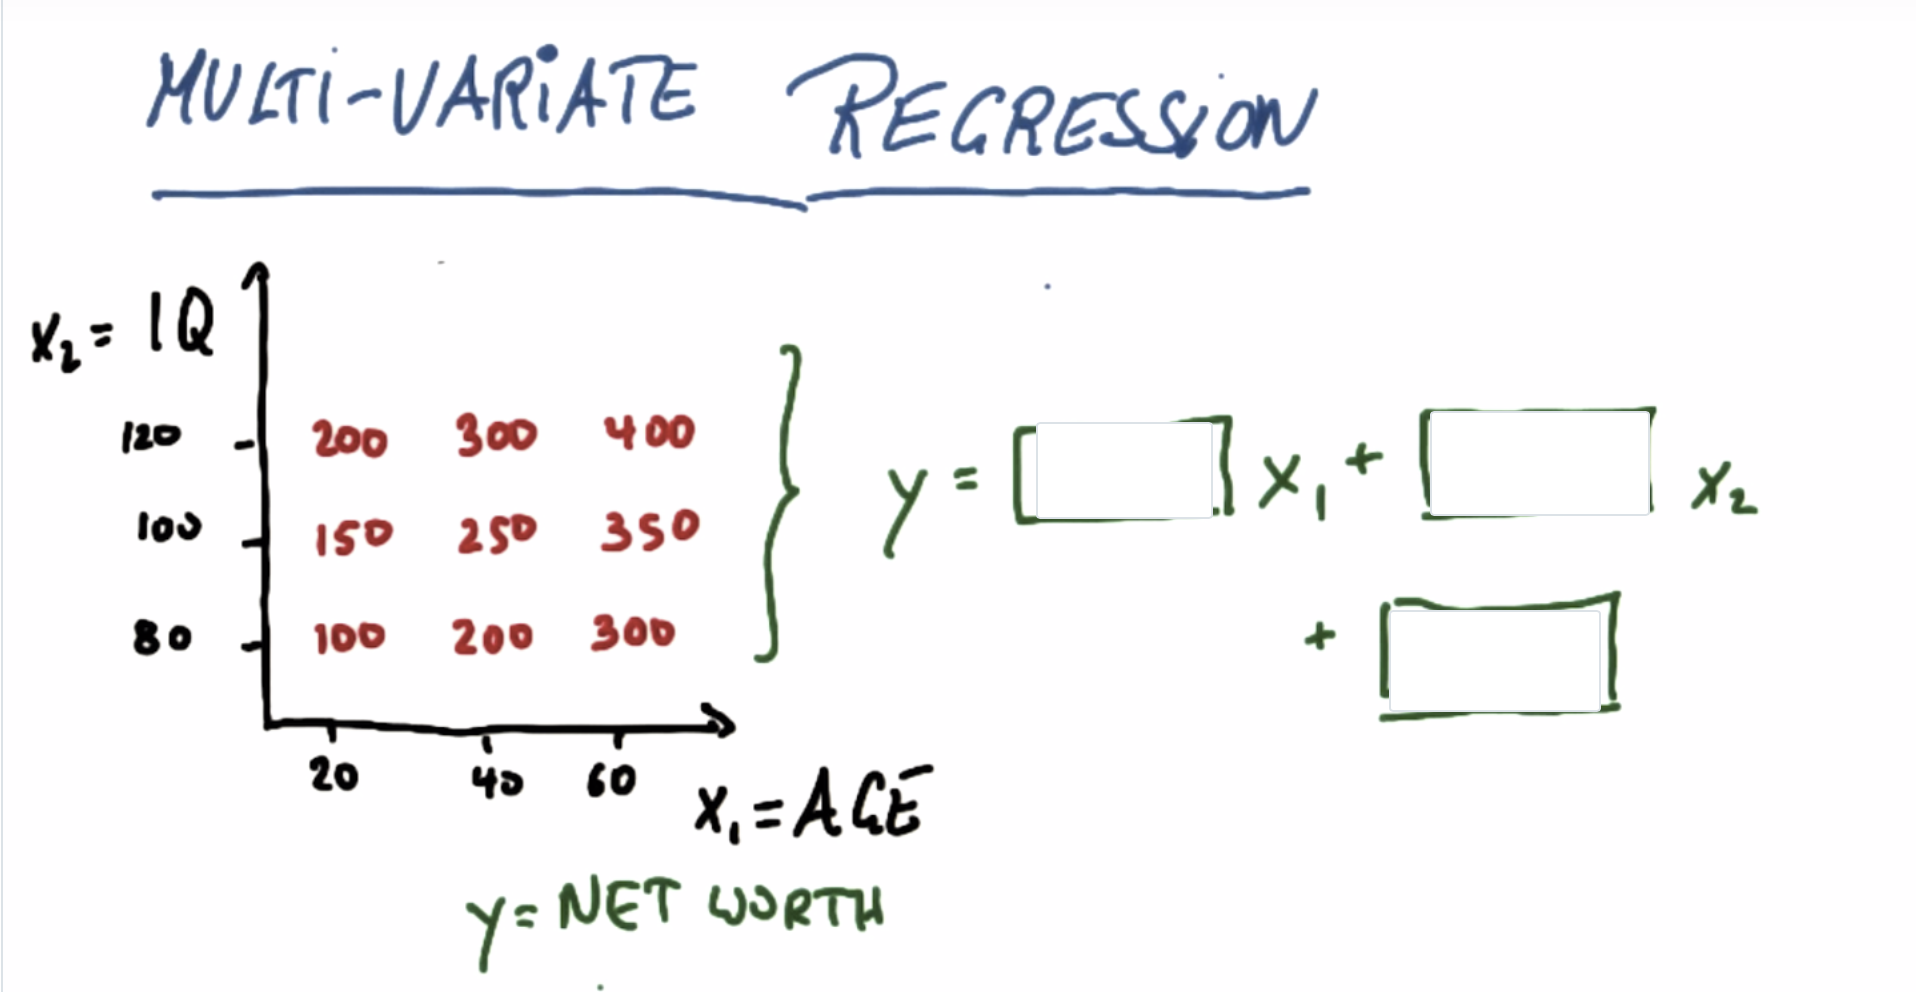 MULTI-VARIATE REGRESSION
x₂ = IQ
120 200 300 400
100 150 250 350
80 100 200 300
20 40 60
x₁ = AGE
y = NET WORTH
y = [ ] x₁ + [ ] x₂
+ [ ]